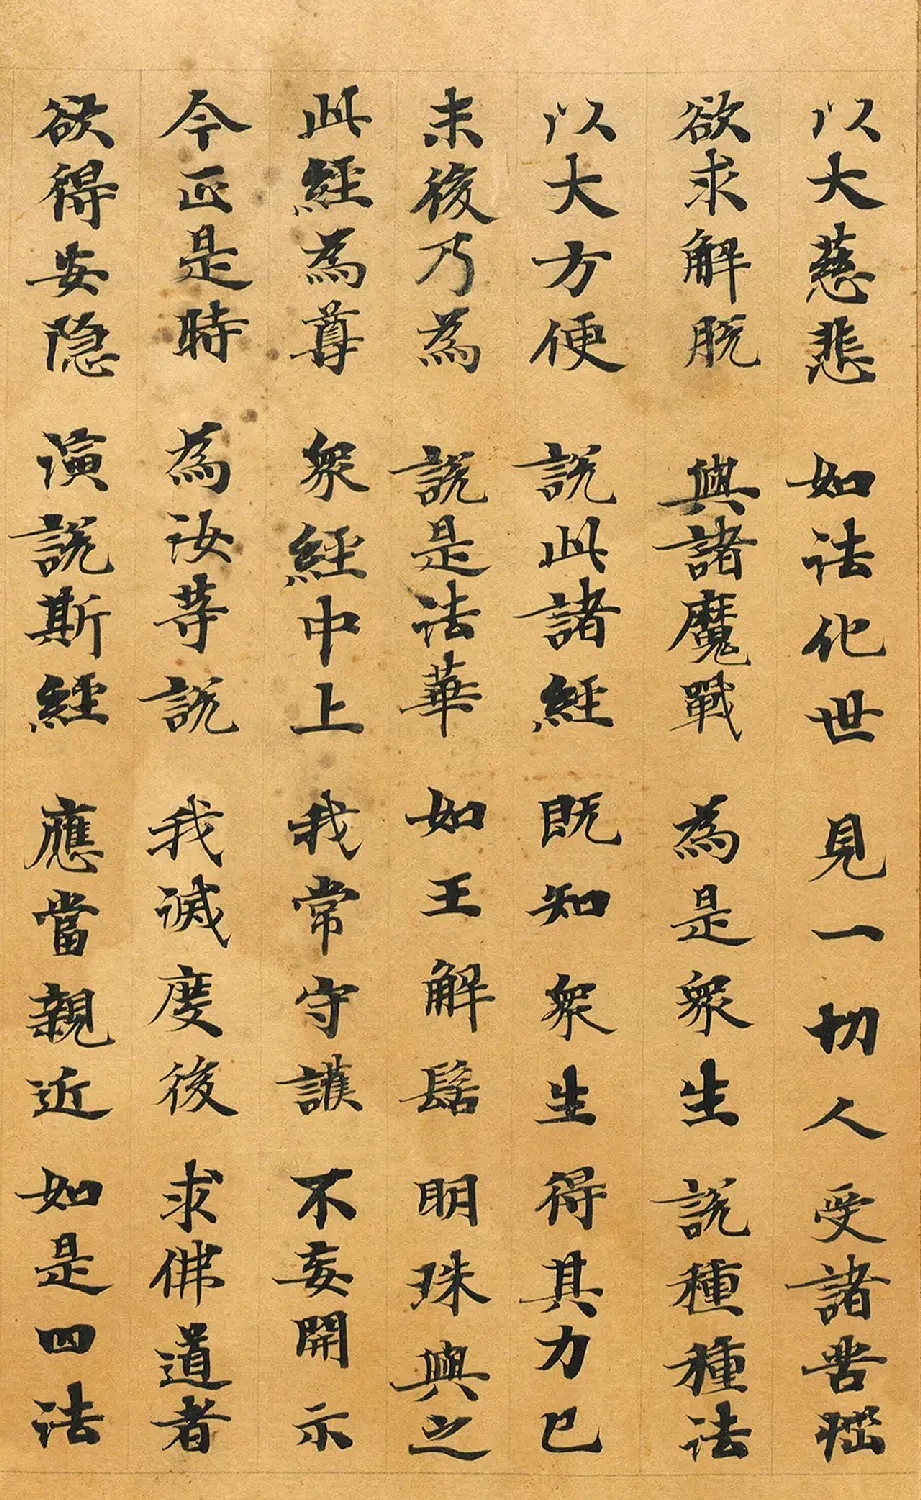 以大慈悲 如法化世 見一切人 受諸苦惱
欲求解脫 與諸魔戰 為是眾生 說種種法
以大方便 說此諸經 既知眾生 得其力已
末後乃為 說是法華 如王解髻 明珠與之
此經為尊 眾經中上 我常守護 不妄開示
今正是時 為汝等說 我滅度後 求佛道者
欲得安隱 演說斯經 應當親近 如是四法